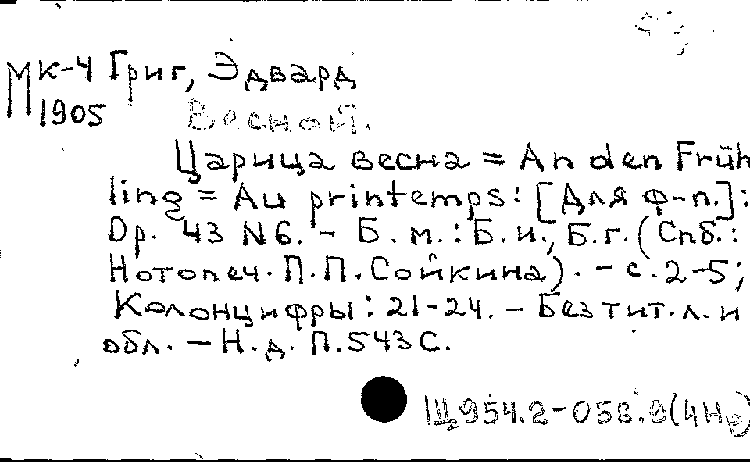 МК-4 Григ, Эдвард
1905 Весной.
Царица весна = An den Früh
ling = Au printemps: [Для ф-п.]:
Op. 43 N6. - Б.м.: Б.и., Б.г. (Спб.:
Нотопеч. П.П. Сойкина). - с. 2-5;
Колонцифры: 21-24. - Без тит. л. и
обл. - Н.д. П.543С.
Щ954.2-058.9(4Но)